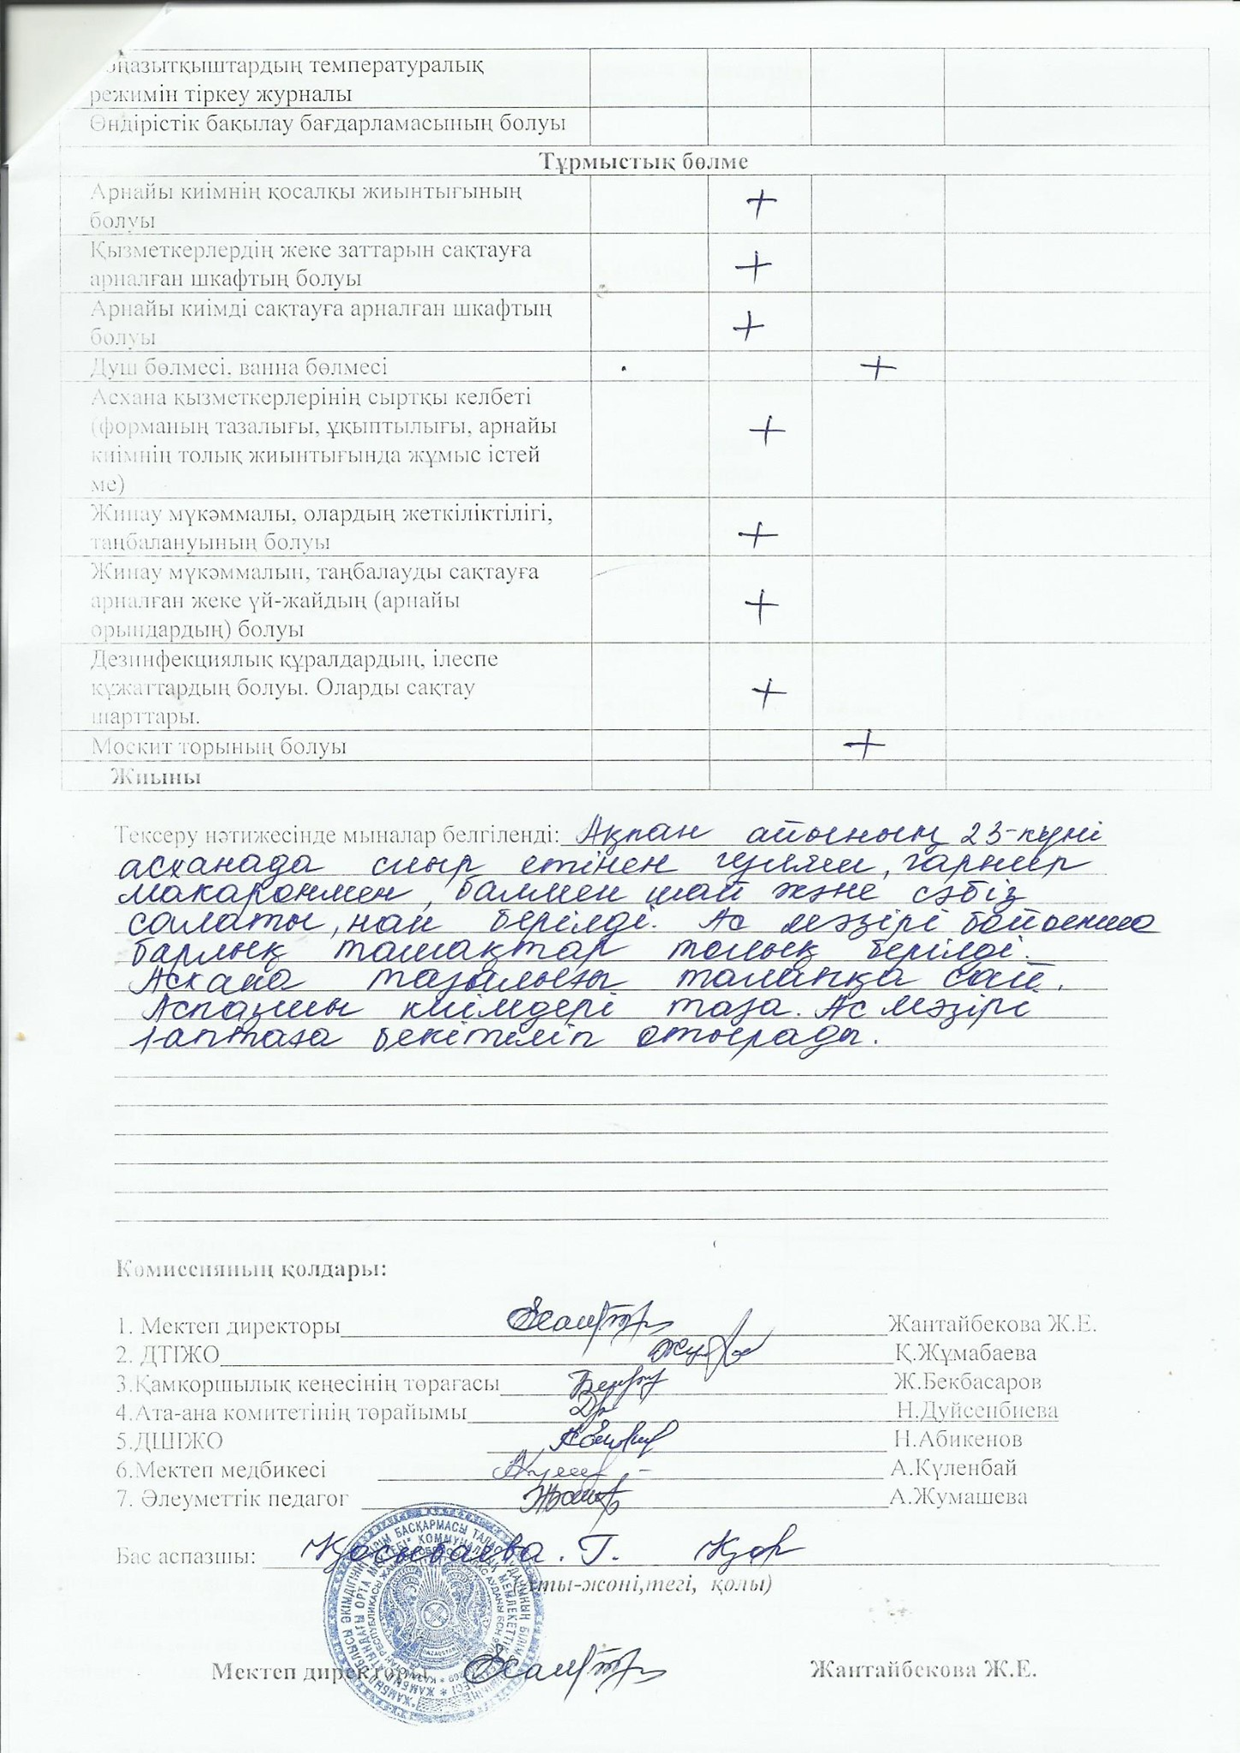 ңазытқыштардың температуралық
режимін тіркеу журналы
Өндірістік бақылау бағдарламасының болуы
Тұрмыстық бөлме
Арнайы киімнің қосалқы жиынтығының
болуы
+
Қызметкерлердің жеке заттарын сақтауға
арналған шкафтың болуы
+
Арнайы киімді сақтауға арналған шкафтың
болуы
+
Душ бөлмесі, ванна бөлмесі +
Асхана қызметкерлерінің сыртқы келбеті
(форманың тазалығы, ұқыптылығы, арнайы
киімнің толық жиынтығында жұмыс істей
ме)
+
Жинау мүкәммалы, олардың жеткіліктілігі,
таңбалануының болуы
+
Жинау мүкәммалын, таңбалауды сақтауға
арналған жеке үй-жайдың (арнайы
орындардың) болуы
+
Дезинфекциялық құралдардың, ілеспе
құжаттардың болуы. Оларды сақтау
шарттары.
+
Москит торының болуы +
Жиыны
Тексеру нәтижесінде мыналар белгіленді: Ақпан айының 23-күні
асханада сиыр етінен гуляш, гарнир
макаронмен, балмен шай және сәбіз
салаты, нан берілді. Ас мәзірі бойынша
барлық тамақтар толық берілді.
Асхана тазалығы талапқа сай.
Аспазшы киімдері таза. Ас мәзірі
1 аптаға бекітіліп отырады.
Комиссияның қолдары:
1. Мектеп директоры Жантайбекова Ж.Е.
2. ДТІЖО Қ.Жұмабаева
3.Қамқоршылық кеңесінің төрағасы Ж.Бекбасаров
4.Ата-ана комитетінің төрайымы Н.Дүйсенбиева
5.ДШІЖО Н.Абикенов
6.Мектеп медбикесі А.Күленбай
7. Әлеуметтік педагог А.Жумашева
Бас аспазшы: Г.
(аты-жөні,тегі, қолы)
Мектеп директоры Жантайбекова Ж.Е.